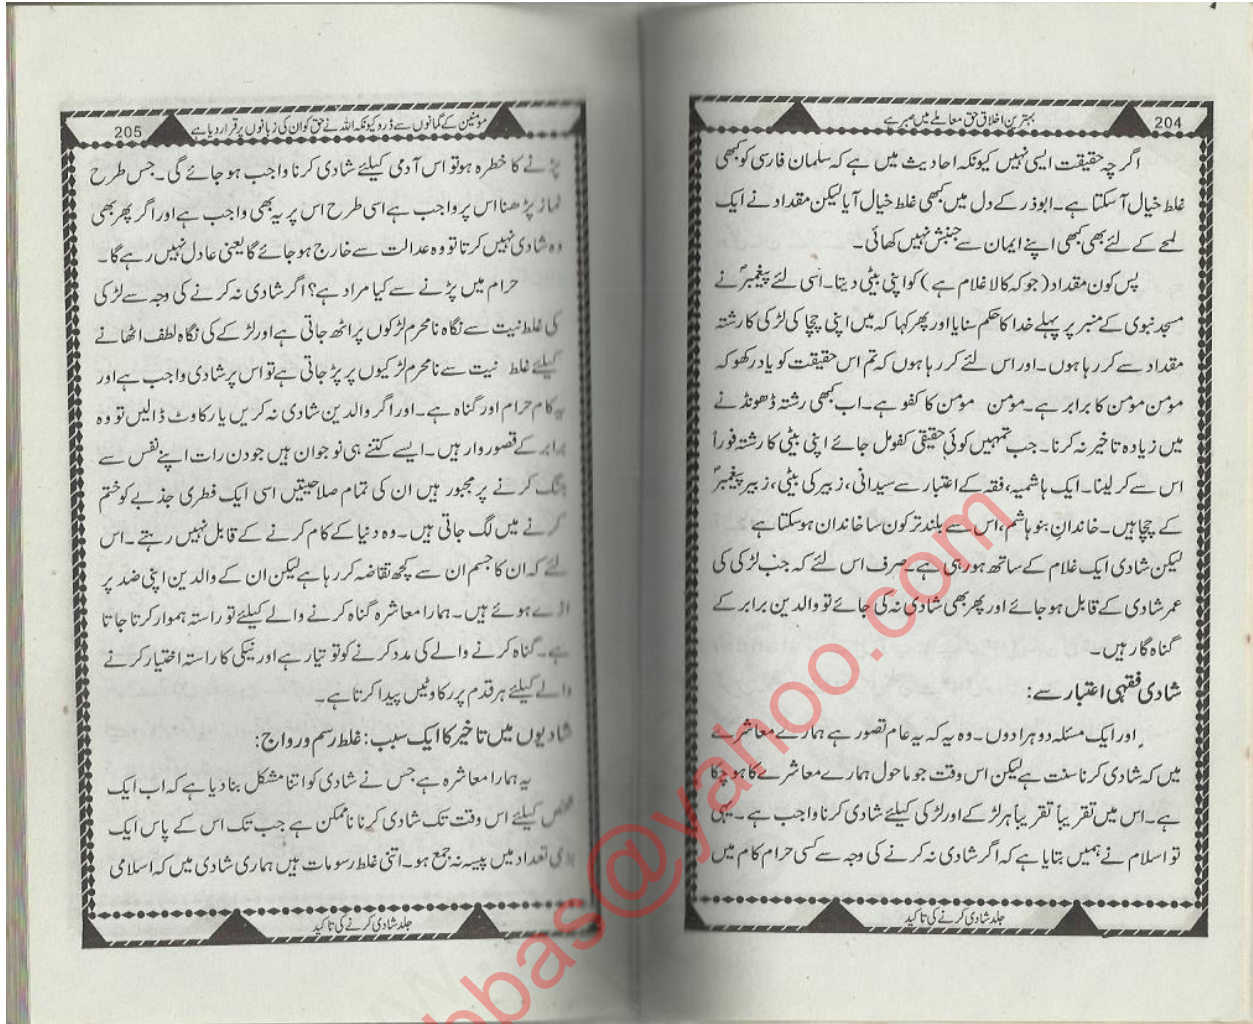 204
بہترین اخلاق حق معاملے میں صبر ہے
اگرچہ حقیقت ایسی نہیں کیونکہ احادیث میں ہے کہ سلمان فارسی کو کبھی
غلط خیال آسکتا ہے۔ ابوذر کے دل میں کبھی غلط خیال آیا لیکن مقداد نے ایک
لمحے کے لئے بھی کبھی اپنے ایمان سے جنبش نہیں کھائی۔
پس کون مقداد (جو کہ کالا غلام ہے) کو اپنی بیٹی دیتا۔ اسی لئے پیغمبرؐ نے
مسجد نبوی کے منبر پر پہلے خدا کا حکم سنایا اور پھر کہا کہ میں اپنی چچا کی لڑکی کا رشتہ
مقداد سے کر رہا ہوں۔ اور اس لئے کر رہا ہوں کہ تم اس حقیقت کو یاد رکھو کہ
مومن مومن کا برابر ہے۔ مومن مومن کا کفو ہے۔ اب کبھی رشتہ ڈھونڈنے
میں زیادہ تاخیر نہ کرنا۔ جب تمہیں کوئی حقیقی کفو مل جائے اپنی بیٹی کا رشتہ فوراً
اس سے کر لینا۔ ایک ہاشمیہ، فقہ کے اعتبار سے سیدانی، زبیر کی بیٹی، زبیر پیغمبرؐ
کے چچا ہیں۔ خاندانِ بنو ہاشم، اس سے بلند تر کون سا خاندان ہو سکتا ہے
لیکن شادی ایک غلام کے ساتھ ہو رہی ہے۔ صرف اس لئے کہ جب لڑکی کی
عمر شادی کے قابل ہو جائے اور پھر بھی شادی نہ کی جائے تو والدین برابر کے
گناہ گار ہیں۔
شادی فقہی اعتبار سے:
اور ایک مسئلہ دوہرا دوں۔ وہ یہ کہ یہ عام تصور ہے ہمارے معاشرے
میں کہ شادی کرنا سنت ہے لیکن اس وقت جو ماحول ہمارے معاشرے کا ہو چکا
ہے۔ اس میں تقریباً تقریباً ہر لڑکے اور لڑکی کیلئے شادی کرنا واجب ہے۔ یہی
تو اسلام نے ہمیں بتایا ہے کہ اگر شادی نہ کرنے کی وجہ سے کسی حرام کام میں
جلد شادی کرنے کی تاکید
مومنین کے گمانوں سے ڈرو کیونکہ اللہ نے حق کو ان کی زبانوں پر قرار دیا ہے
205
پڑنے کا خطرہ ہو تو اس آدمی کیلئے شادی کرنا واجب ہو جائے گی۔ جس طرح
نماز پڑھنا اس پر واجب ہے اسی طرح اس پر یہ بھی واجب ہے اور اگر پھر بھی
وہ شادی نہیں کرتا تو وہ عدالت سے خارج ہو جائے گا یعنی عادل نہیں رہے گا۔
حرام میں پڑنے سے کیا مراد ہے؟ اگر شادی نہ کرنے کی وجہ سے لڑکی
کی غلط نیت سے نگاہ نامحرم لڑکوں پر اٹھ جاتی ہے اور لڑکے کی نگاہ لطف اٹھانے
کیلئے غلط نیت سے نامحرم لڑکیوں پر پڑ جاتی ہے تو اس پر شادی واجب ہے اور
یہ کام حرام اور گناہ ہے۔ اور اگر والدین شادی نہ کریں یا رکاوٹ ڈالیں تو وہ
برابر کے قصوروار ہیں۔ ایسے کتنے ہی نوجوان ہیں جو دن رات اپنے نفس سے
جنگ کرنے پر مجبور ہیں ان کی تمام صلاحیتیں اسی ایک فطری جذبے کو ختم
کرنے میں لگ جاتی ہیں۔ وہ دنیا کے کام کرنے کے قابل نہیں رہتے۔ اس
لئے کہ ان کا جسم ان سے کچھ تقاضہ کر رہا ہے لیکن ان کے والدین اپنی ضد پر
اڑے ہوئے ہیں۔ ہمارا معاشرہ گناہ کرنے والے کیلئے تو راستہ ہموار کرتا جاتا
ہے۔ گناہ کرنے والے کی مدد کرنے کو تو تیار ہے اور نیکی کا راستہ اختیار کرنے
والے کیلئے ہر قدم پر رکاوٹیں پیدا کرتا ہے۔
شادیوں میں تاخیر کا ایک سبب: غلط رسم و رواج:
یہ ہمارا معاشرہ ہے جس نے شادی کو اتنا مشکل بنا دیا ہے کہ اب ایک
شخص کیلئے اس وقت تک شادی کرنا ناممکن ہے جب تک اس کے پاس ایک
بڑی تعداد میں پیسہ نہ جمع ہو۔ اتنی غلط رسومات ہیں ہماری شادی میں کہ اسلامی
جلد شادی کرنے کی تاکید
bbas@yahoo.com